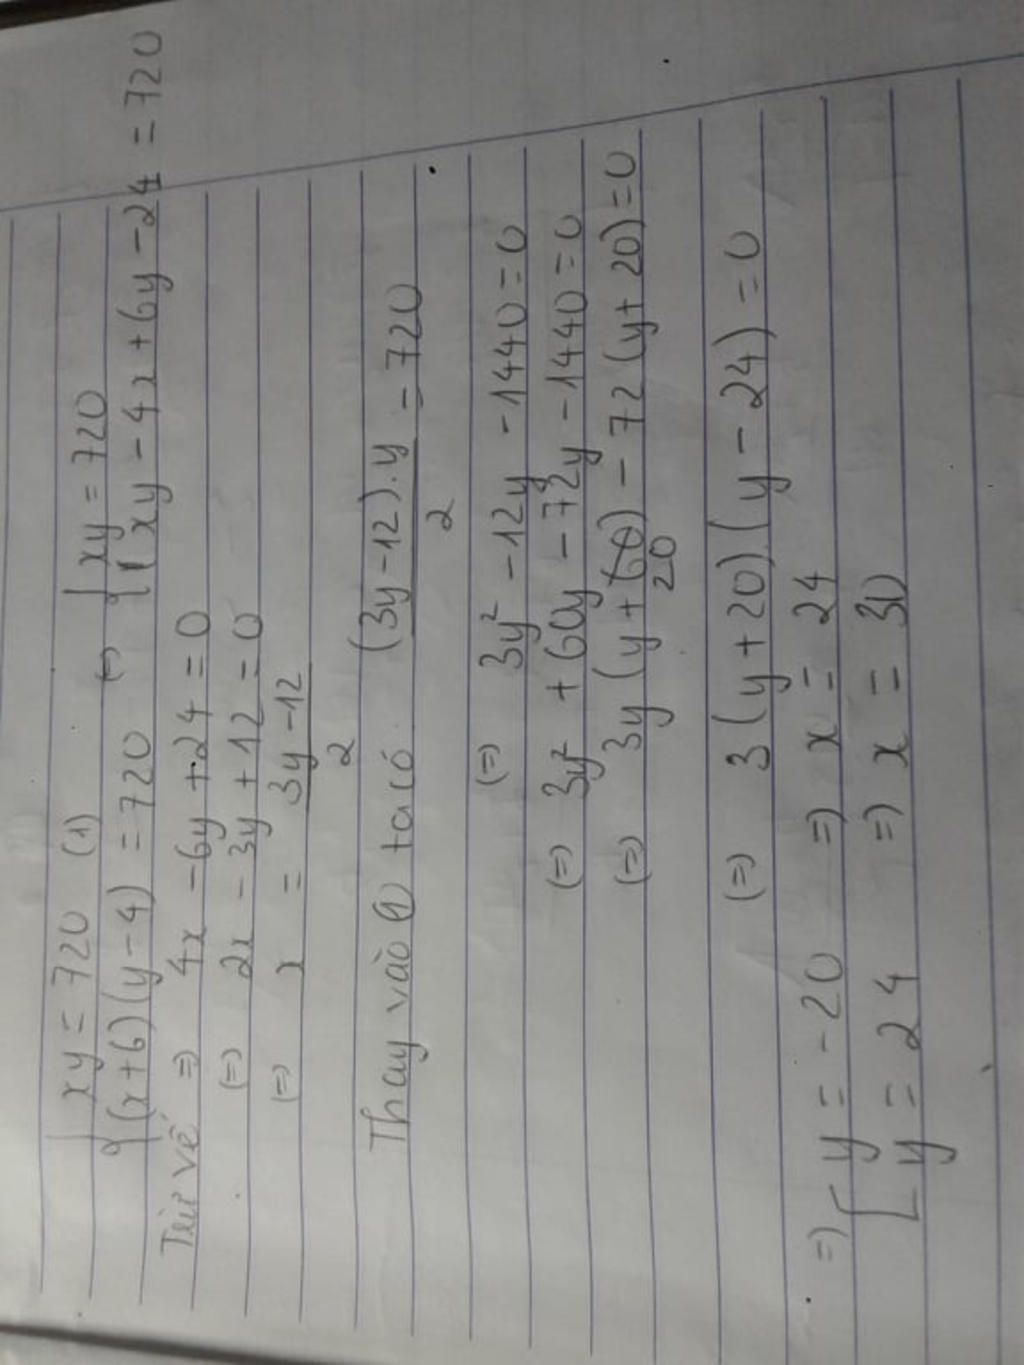 { xy = 720 (1) (=) { xy = 720
{ (x+6)(y-4) = 720 { (xy - 4x + 6y - 24 = 720
Trừ vế => 4x - 6y + 24 = 0
(=) 2x - 3y + 12 = 0
(=) x = (3y - 12)/2
Thay vào (1) ta có (3y-12).y/2 = 720
(=) 3y² - 12y - 1440 = 0
(=) 3y² + 60y - 72y - 1440 = 0
(=) 3y (y + 20) - 72 (y + 20) = 0
(=) 3 (y + 20) (y - 24) = 0
=) [ y = -20 =) x = 24
[ y = 24 =) x = 30